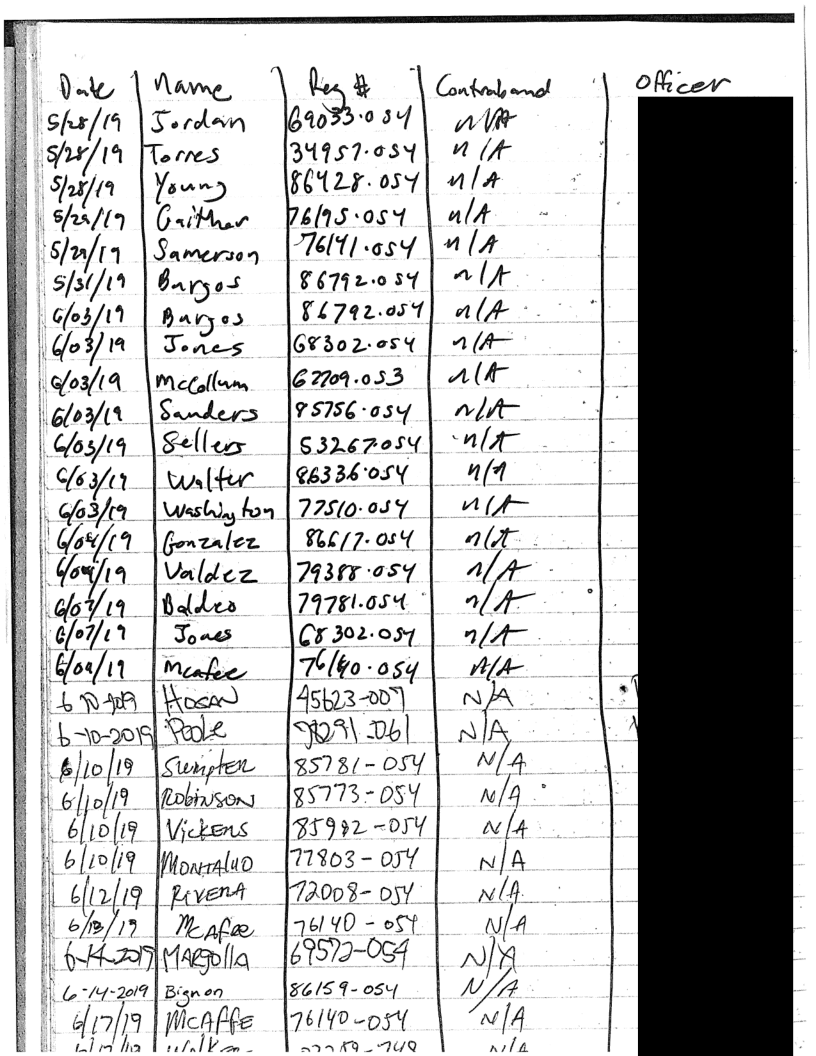 Date Name Reg # Contraband Officer
5/28/19 Jordan 69033.054 n/A
5/28/19 Torres 34957.054 n/A
5/28/19 Young 86428.054 n/A
5/29/19 Gaither 76195.054 n/A
5/29/19 Samerson 76141.054 n/A
5/31/19 Burgos 86792.054 n/A
6/03/19 Burgos 86792.054 n/A
6/03/19 Jones 68302.054 n/A
6/03/19 McCollum 62709.053 n/A
6/03/19 Sanders 85756.054 n/A
6/03/19 Sellers 53267.054 n/A
6/03/19 Walter 86336.054 n/A
6/03/19 Washington 77510.054 n/A
6/04/19 Gonzalez 86617.054 n/A
6/04/19 Valdez 79388.054 n/A
6/07/19 Baldeo 79781.054 n/A
6/07/19 Jones 68302.054 n/A
6/09/19 Mcafee 76140.054 N/A
HOGAN 45623-007 N/A
6-10-2019 Poole N/A
6/10/19 Sumpter 85781-054 N/A
6/10/19 Robinson 85773-054 N/A
6/10/19 Vickens 85982-054 N/A
6/10/19 MONTALVO 77803-054 N/A
6/12/19 RIVERA 72008-054 N/A
6/13/19 McAfee 76140-054 N/A
6-14-2019 MARGOlla 69572-054 N/A
6-14-2019 Bignon 86159-054 N/A
6/17/19 McAFFE 76140-054 N/A